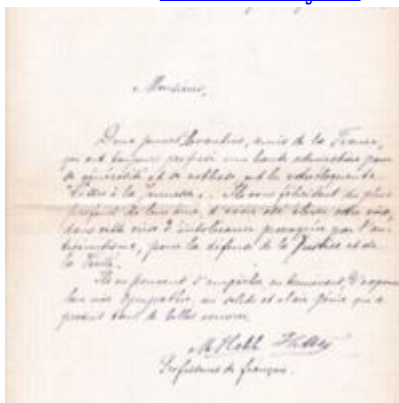 Monsieur,
Deux jeunes Brésiliens, amis de la France,
qui ont toujours professé une haute admiration pour
sa générosité et sa noblesse, ont lu votre
"Lettre à la Jeunesse". Ils vous félicitent du plus
profond de leur âme, d'avoir osé élever votre voix,
dans cette crise d'intolérance provoquée par l'an-
tisémitisme, pour la défense de la Justice et de
la Vérité.
Ils ne peuvent s'empêcher, en terminant, d'exprimer
leur vive sympathie, au génie qui a
produit tant de belles oeuvres.
Professeurs de français.